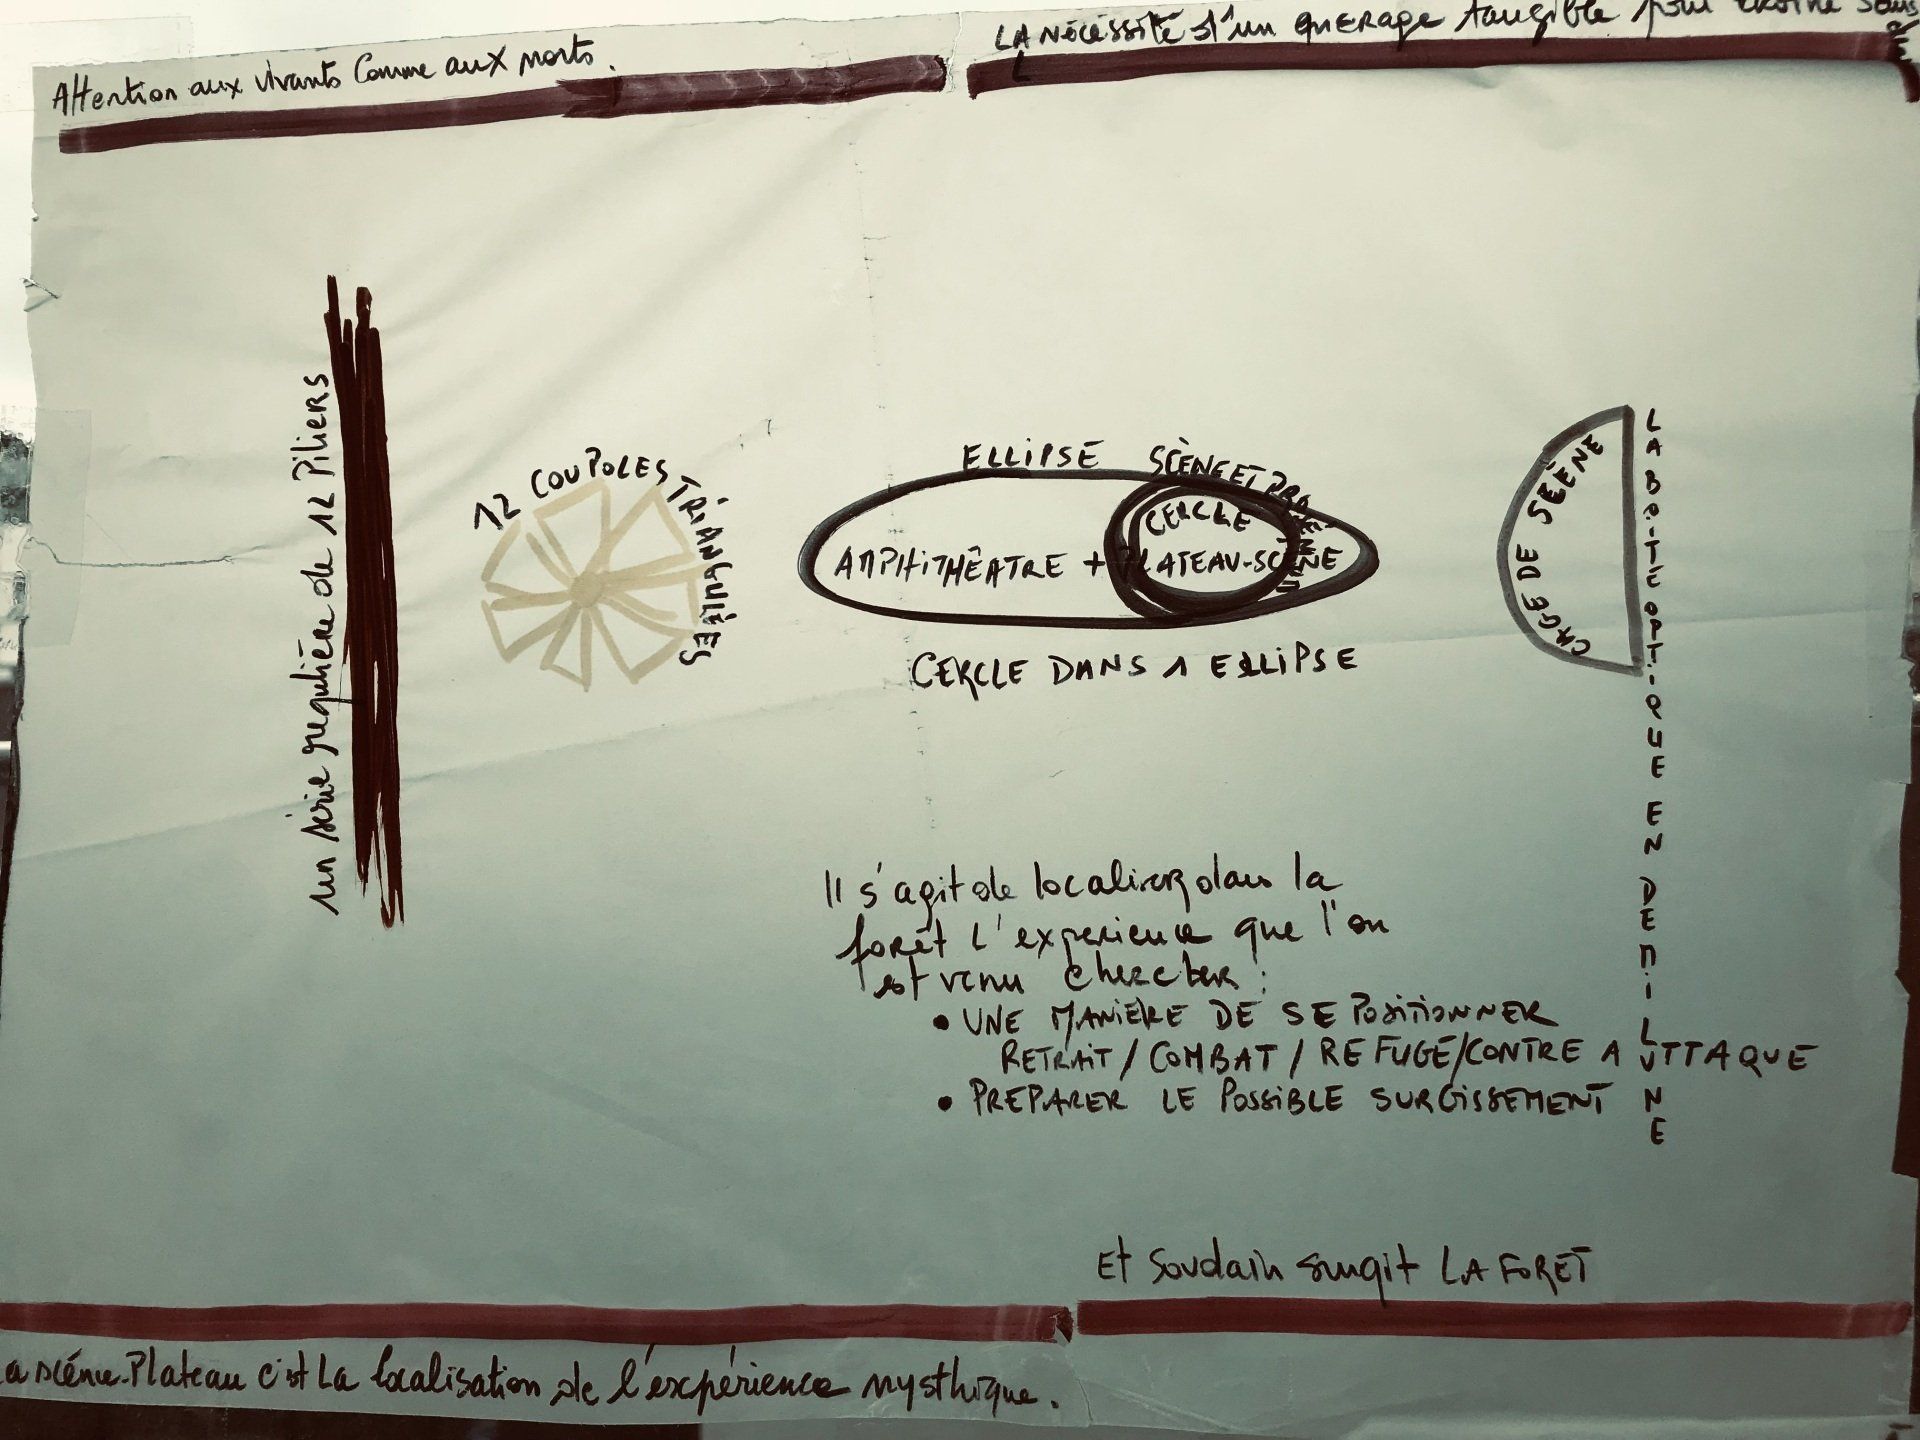 Attention aux vivants Comme aux morts.
LA Nécéssité d'un guerage tangible pour croire sans
un série regulière de 12 PiliERS
12 COUPOLES TRIANGULÉES
ELLIPSE
SCÈNE ET PROSCÉNIUM
CERCLE
AMPHITHÊATRE + PLATEAU-SCÈNE
CERCLE DANS 1 ELLIPSE
CAGE DE SÉÈNE
LA BOITE OPTIQUE EN DEMI LUNE
Il s'agit de localiser dans la
forêt L'experience que l'on
est venu chercher :
• UNE MANIÈRE DE SE POSITIONNER
RETRAIT / COMBAT / REFUGE/CONTRE ATTAQUE
• PREPARER LE POSSIBLE SURGISSEMENT
Et Soudain surgit LA FORET
a scéne-Plateau c'est La localisation de l'expérience mysthique.